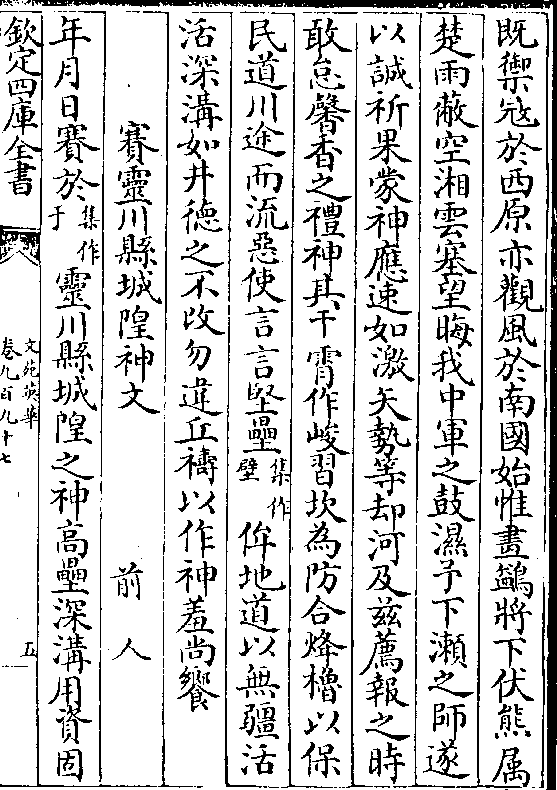 既禦寇於西原亦觀風於南國始惟畫鷁將下伏熊属
楚雨蔽空湘雲塞望晦我中軍之鼓濕予下瀬之師遂
以誠祈果蒙神應速如激矢勢等却河及兹薦報之時
敢怠馨香之禮神其干霄作峻習坎為防合烽櫓以保
民道川途而流惡使言言堅壘集作壁侔地道以無疆活
活深溝如井徳之不改勿違丘禱以作神羞尚饗
賽靈川縣城隍神文 前人
年月日賽於集作于靈川縣城隍之神高壘深溝用資固
欽定四庫全書
文苑英華
卷九百九十七
五